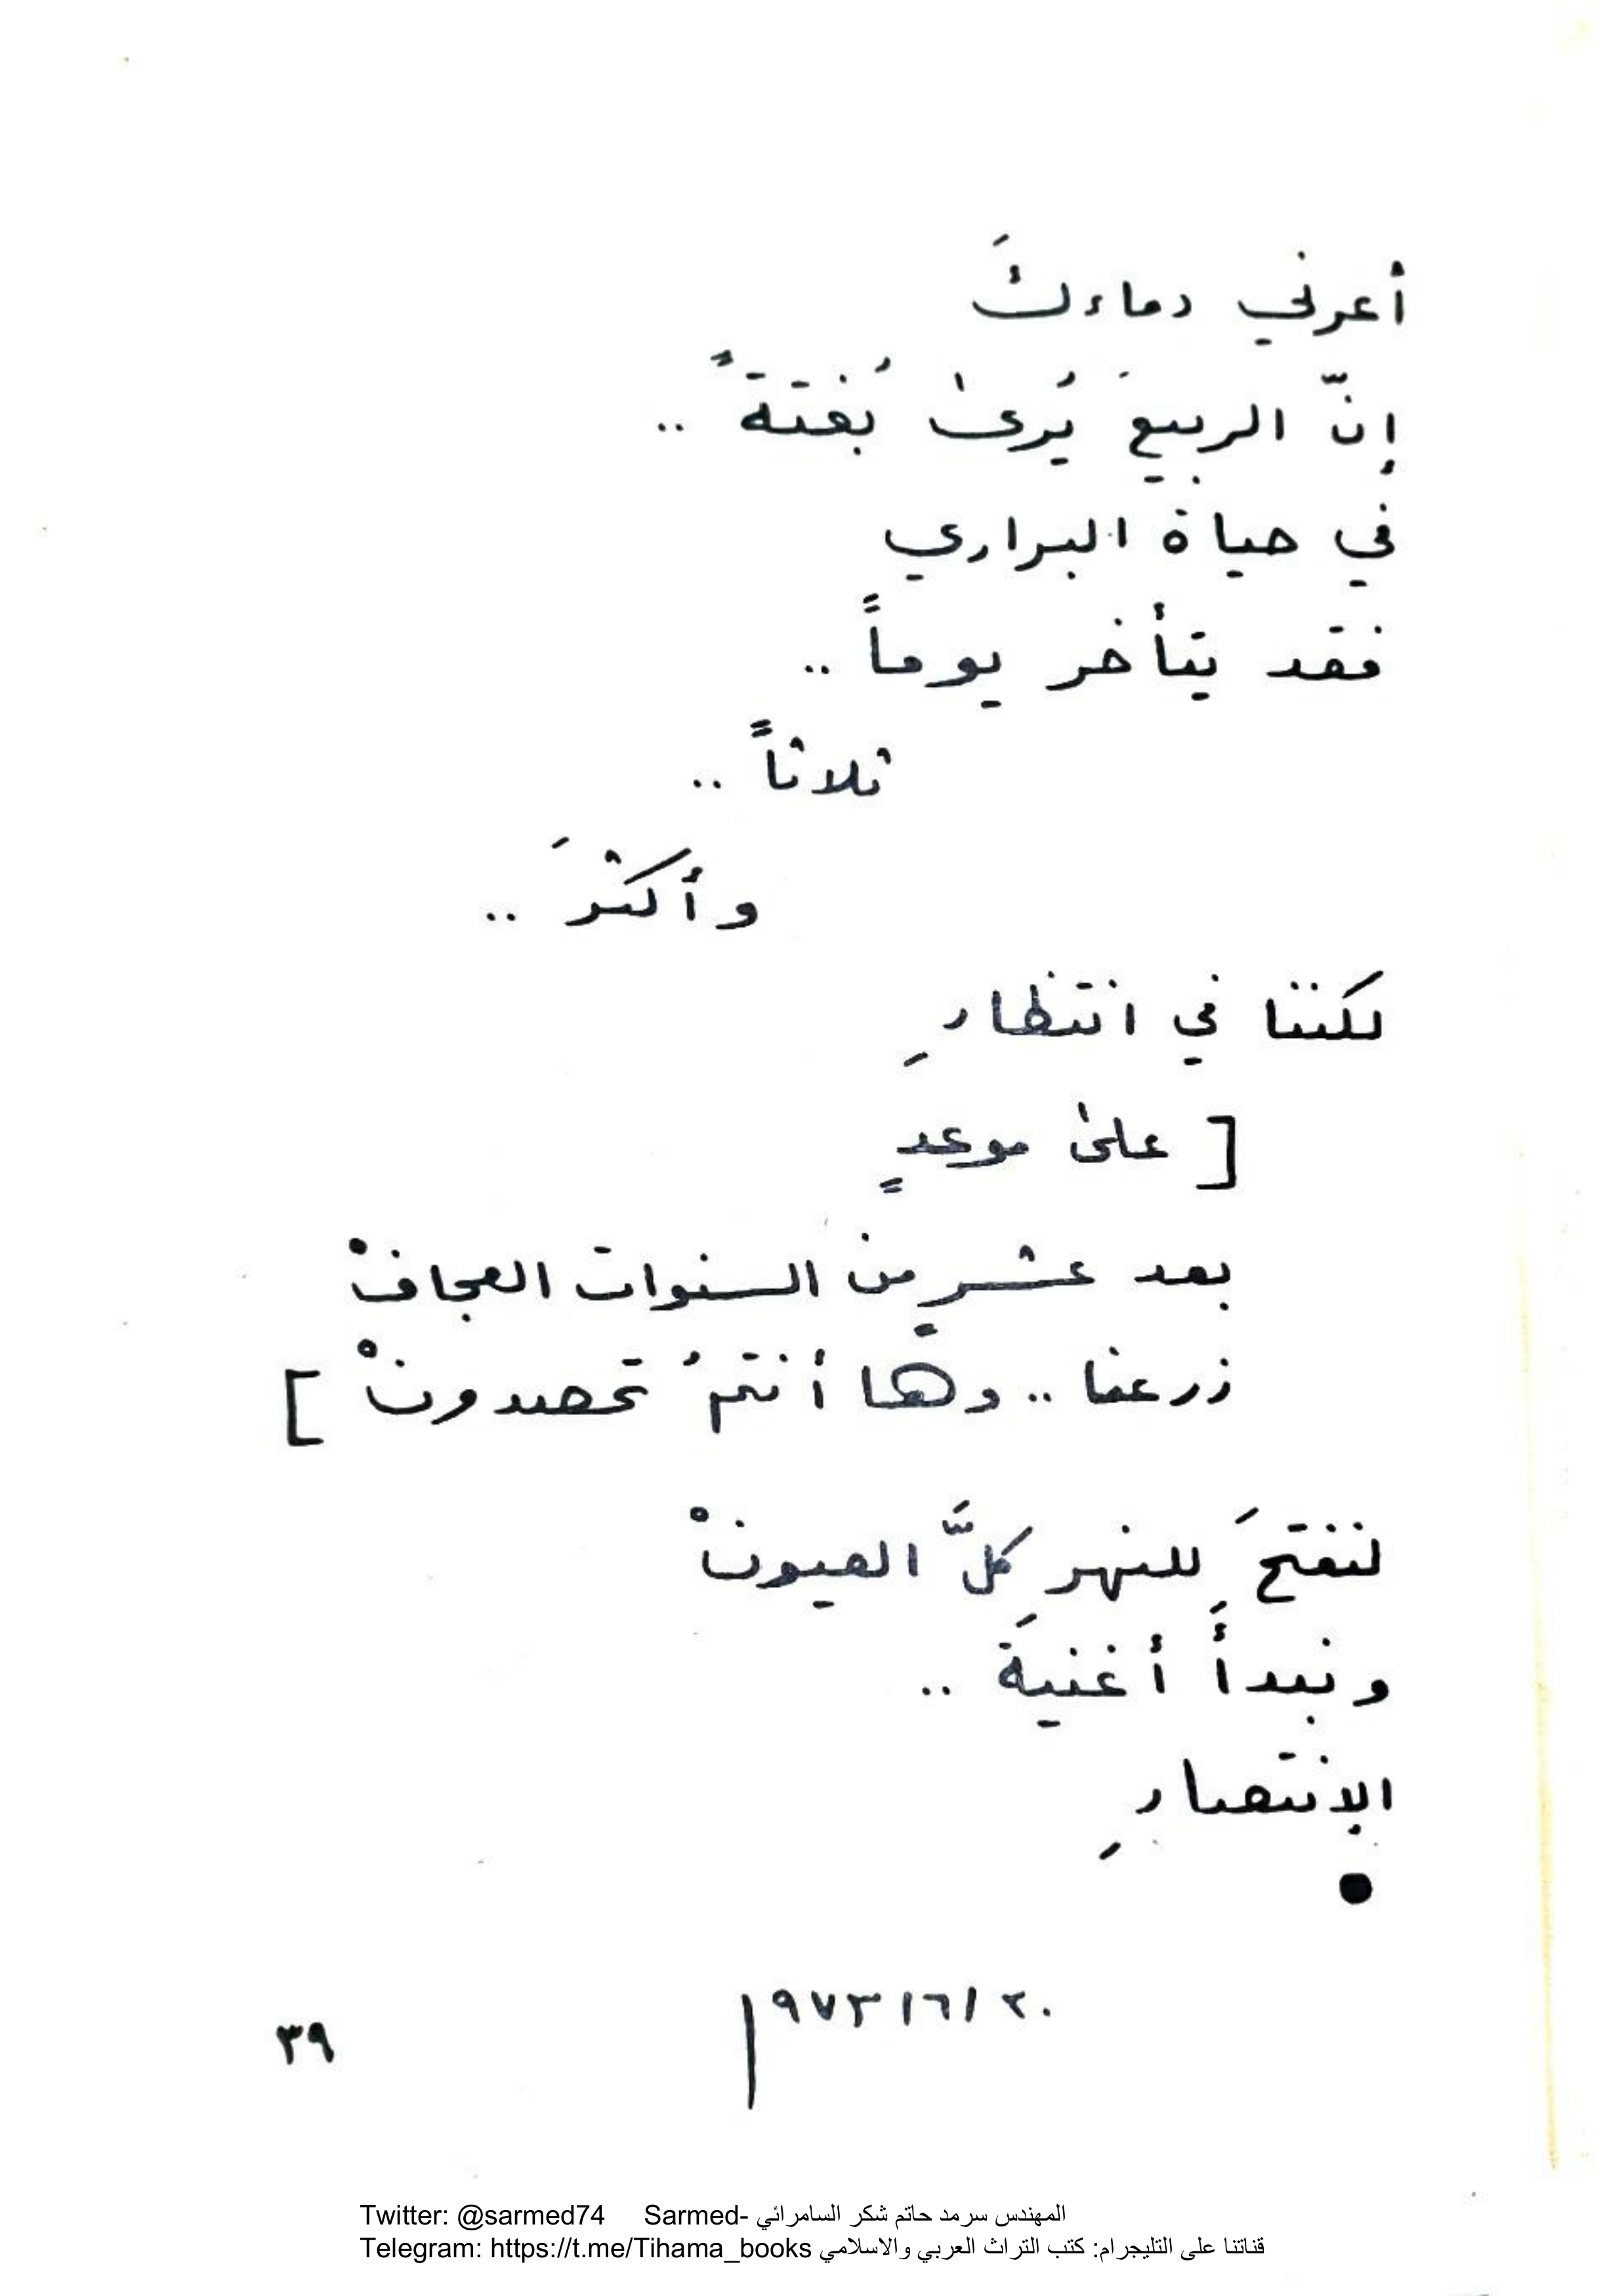 أعرني دماءكَ
إنّ الربيعَ يُرىٰ بُغتةً ..
في حياة البراري
فقد يتأخر يوماً ..
ثلاثاً ..
وأكثرَ ..
لكننا في انتظارِ
[ علىٰ موعدٍ
بعد عشرٍ من السنوات العجافْ
زرعنا .. وها أنتمُ تحصدونْ ]
لنفتحَ للنهرِ كلَّ العيونْ
ونبدأَ أغنيةَ ..
الإنتصارِ
●
٢٠/٦/١٩٧٣
٣٩
Twitter: @sarmed74 Sarmed- المهندس سرمد حاتم شكر السامرائي
Telegram: https://t.me/Tihama_books قناتنا على التليجرام: كتب التراث العربي والاسلامي